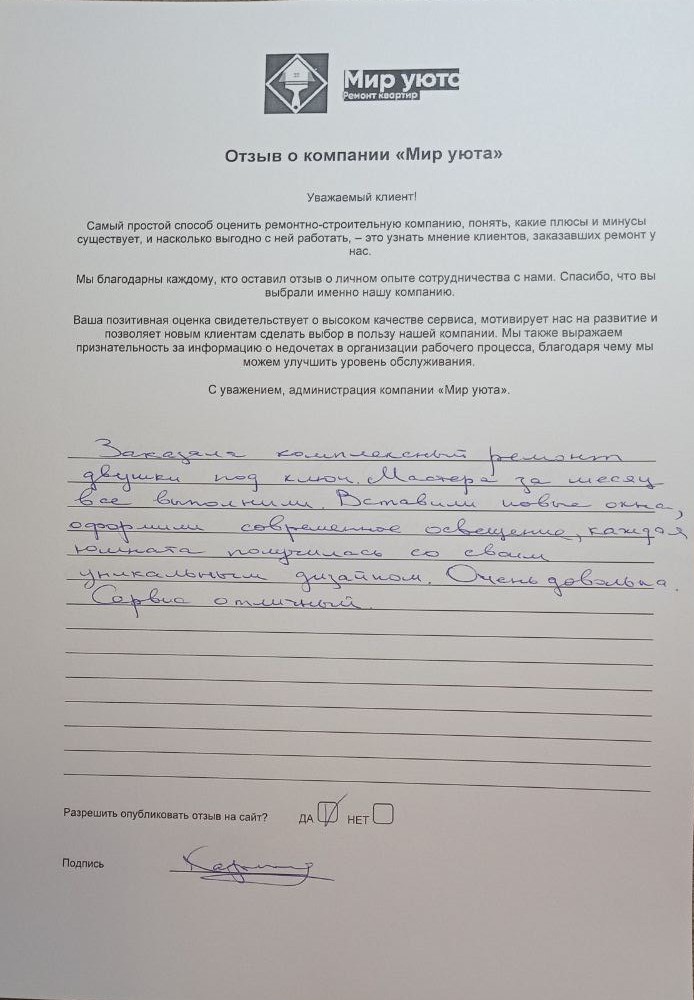 Мир уюта
Ремонт квартир
Отзыв о компании «Мир уюта»
Уважаемый клиент!
Самый простой способ оценить ремонтно-строительную компанию, понять, какие плюсы и минусы
существует, и насколько выгодно с ней работать, – это узнать мнение клиентов, заказавших ремонт у
нас.
Мы благодарны каждому, кто оставил отзыв о личном опыте сотрудничества с нами. Спасибо, что вы
выбрали именно нашу компанию.
Ваша позитивная оценка свидетельствует о высоком качестве сервиса, мотивирует нас на развитие и
позволяет новым клиентам сделать выбор в пользу нашей компании. Мы также выражаем
признательность за информацию о недочетах в организации рабочего процесса, благодаря чему мы
можем улучшить уровень обслуживания.
С уважением, администрация компании «Мир уюта».
Заказала комплексный ремонт
двушки под ключ. Мастера за месяц
все выполнили. Вставили новые окна,
оформили современное освещение, каждая
комната получилась со своим
уникальным дизайном. Очень довольна.
Сервис отличный.
Разрешить опубликовать отзыв на сайт? ДА НЕТ
Подпись